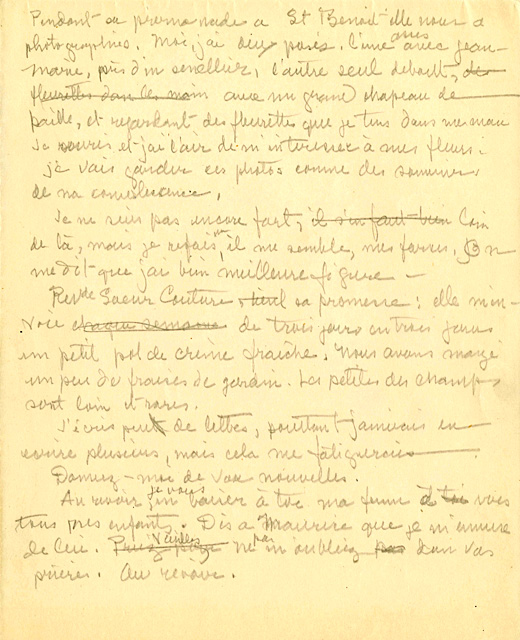 Pendant sa promenade a St Benoit elle nous a
photographiées. Moi, j'ai deux poses. l'une assise avec Jean-
Marie, près d'un sentier, l'autre seul debout, des
fleurettes dans les main avec un grand chapeau de
paille, et regardant des fleurettes que je tiens dans ma main
Je souris et j'ai l'air de m'intéresser à mes fleurs.
Je vais garder ces photos comme des souvenirs
de ma convalescence.
Je ne suis pas encore fort, il s'en faut bien loin
de là, mais je refais, il me semble, mes forces. On
me dit que j'ai bien meilleure figure -
Revde Soeur Couture tient sa promesse: elle m'en-
voie chaque semaine de trois jours en trois jours
un petit pot de crème fraîche. Nous avons mangé
un peu de fraises de jardin. Les petites des champs
sont loin et rares.
J'écris peu de lettres, pourtant j'aimerais en
écrire plusieurs, mais cela me fatiguerais
Donnez-moi de vos nouvelles.
Au revoir, je vous baiser à toi ma à toi vous
tous mes enfants. Dis a Maurice que je m'ennuie
de lui. Veuillez ne pas m'oubliez pas dans vos
prières. Au revoir.